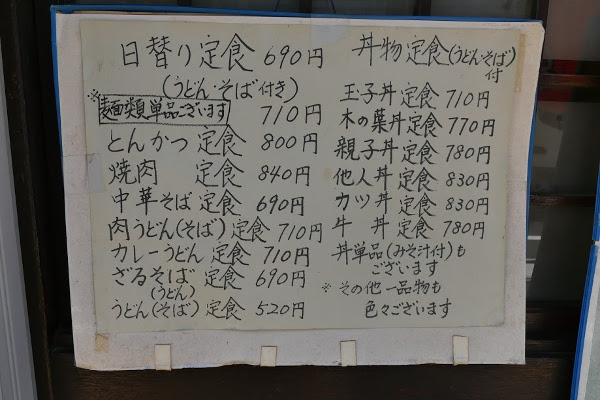 日替り定食 690円
(うどん・そば付き)
※麺類単品ございます 710円
とんかつ定食 800円
焼肉 定食 840円
中華そば定食 690円
肉うどん(そば)定食 710円
カレーうどん定食 710円
ざるそば定食 690円
(うどん)
うどん(そば)定食 520円
丼物定食(うどん・そば)付
玉子丼定食 710円
木の葉丼定食 770円
親子丼定食 780円
他人丼定食 830円
カツ丼定食 830円
牛丼定食 780円
丼単品(みそ汁付)も
ございます
※その他一品物も
色々ございます